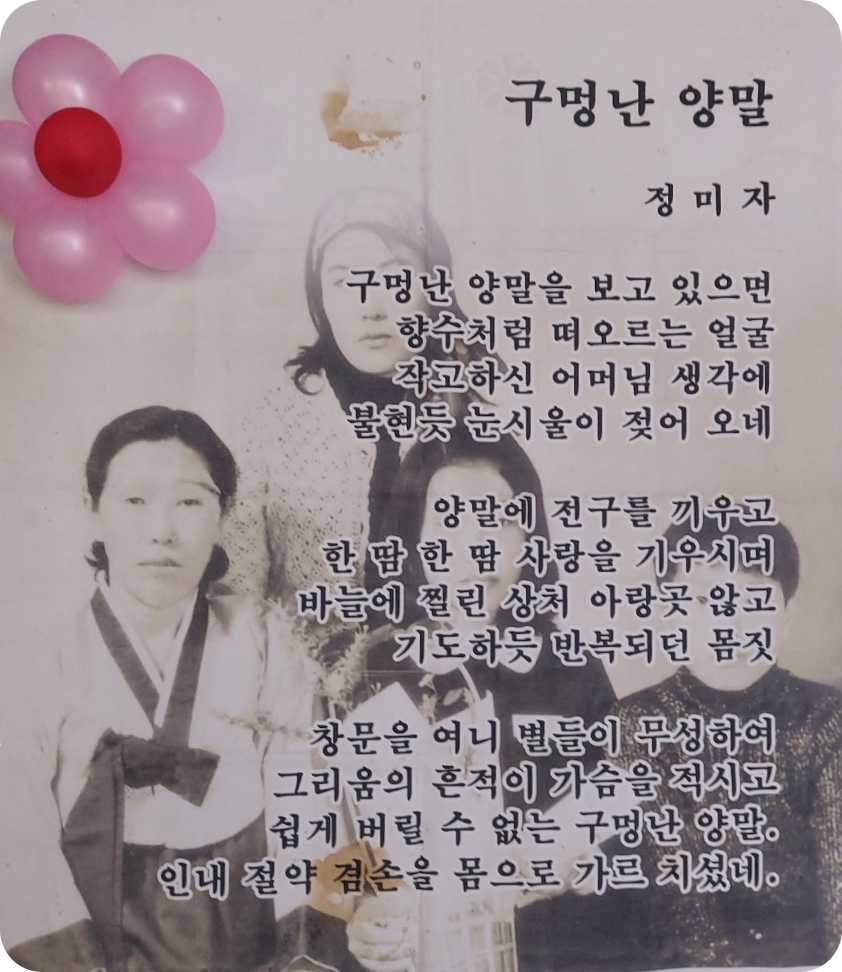 구멍난 양말
정 미 자
구멍난 양말을 보고 있으면
향수처럼 떠오르는 얼굴
작고하신 어머님 생각에
불현듯 눈시울이 젖어 오네
양말에 전구를 끼우고
한 땀 한 땀 사랑을 기우시며
바늘에 찔린 상처 아랑곳 않고
기도하듯 반복되던 몸짓
창문을 여니 별들이 무성하여
그리움의 흔적이 가슴을 적시고
쉽게 버릴 수 없는 구멍난 양말.
인내 절약 겸손을 몸으로 가르 치셨네.